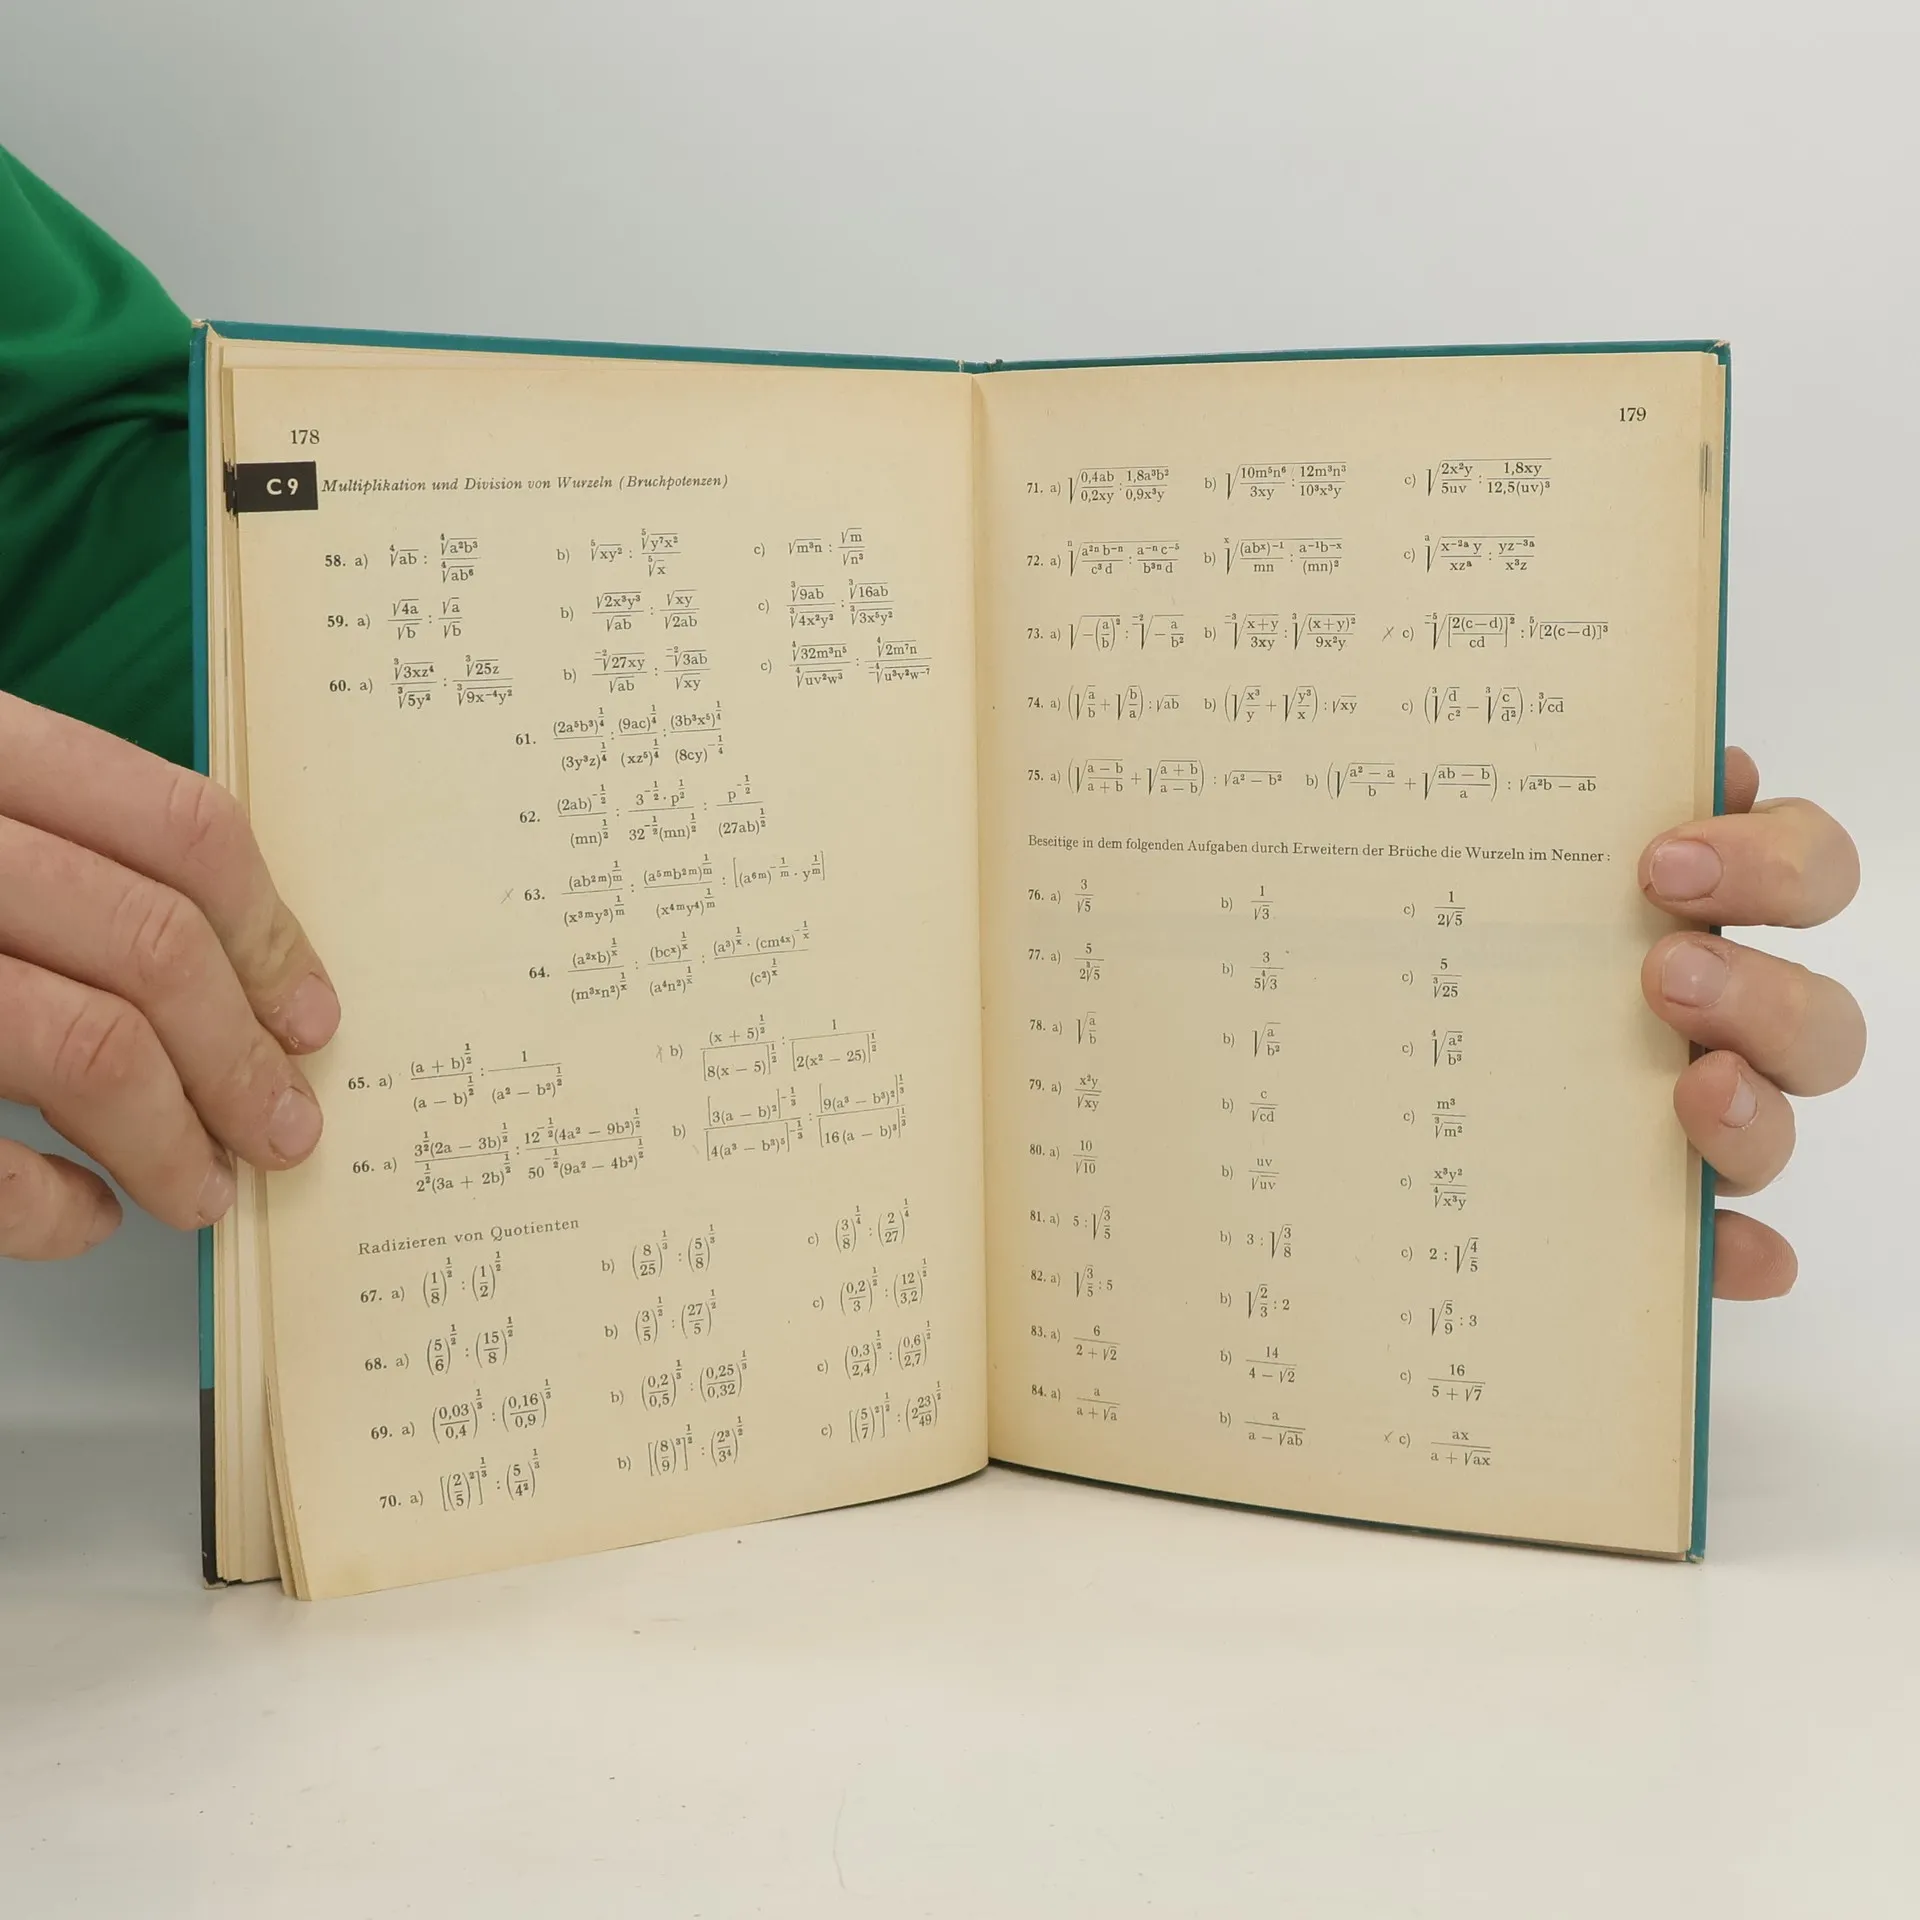 178
C 9 Multiplikation und Division von Wurzeln (Bruchpotenzen)
58. a) ∜(ab) : ∜(a²b³)/∜(ab⁶) b) ⁵√(xy²) : ⁵√(y⁷x²)/⁵√x c) √(m³n) : √m/√(n³)
59. a) √(4a)/√b : √a/√b b) √(2x³y³)/√(ab) : √(xy)/√(2ab) c) ∛(9ab)/∛(4x²y²) : ∛(16ab)/∛(3x⁵y²)
60. a) ∛(3xz⁴)/∛(5y²) : ∛(25z)/∛(9x⁻⁴y²) b) ⁻²√(27xy)/√(ab) : ⁻²√(3ab)/√(xy) c) ∜(32m³n⁵)/∜(uv²w³) : ∜(2m⁷n)/⁻⁴√(u³v²w⁻⁷)
61. (2a⁵b³)^(1/4)/(3y³z)^(1/4) : (9ac)^(1/4)/(xz⁵)^(1/4) : (3b³x⁵)^(1/4)/(8cy)^(-1/4)
62. (2ab)^(-1/2)/(mn)^(1/2) : 3^(-1/2) · p^(1/2)/32^(-1/2)(mn)^(1/2) : p^(-1/2)/(27ab)^(1/2)
63. (ab^(2m))^(1/m)/(x^(3m)y³)^(1/m) : (a^(5m)b^(2m))^(1/m)/(x^(4m)y⁴)^(1/m) : [(a^(6m))^(-1/m) · y^(1/m)]
64. (a^(2x)b)^(1/x)/(m^(3x)n²)^(1/x) : (bc^x)^(1/x)/(a⁴n²)^(1/x) : (a³)^(1/x) · (cm^(4x))^(-1/x)/(c²)^(1/x)
65. a) (a + b)^(1/2)/(a − b)^(1/2) : 1/(a² − b²)^(1/2) b) (x + 5)^(1/2)/[8(x − 5)]^(1/2) : 1/[2(x² − 25)]^(1/2)
66. a) 3^(1/2)(2a − 3b)^(1/2)/2^(1/2)(3a + 2b)^(1/2) : 12^(-1/2)(4a² − 9b²)^(1/2)/50^(-1/2)(9a² − 4b²)^(1/2) b) [3(a − b)²]^(-1/3)/[4(a³ − b³)⁵]^(-1/3) : [9(a³ − b³)²]^(1/3)/[16(a − b)³]^(1/3)
Radizieren von Quotienten
67. a) (1/8)^(1/2) : (1/2)^(1/2) b) (8/25)^(1/3) : (5/8)^(1/3) c) (3/8)^(1/4) : (2/27)^(1/4)
68. a) (5/6)^(1/2) : (15/8)^(1/2) b) (3/5)^(1/2) : (27/5)^(1/2) c) (0,2/3)^(1/2) : (12/3,2)^(1/2)
69. a) (0,03/0,4)^(1/3) : (0,16/0,9)^(1/3) b) (0,2/0,5)^(1/3) : (0,25/0,32)^(1/3) c) (0,3/2,4)^(1/2) : (0,6/2,7)^(1/2)
70. a) [(2/5)²]^(1/3) : (5/4²)^(1/3) b) [(8/9)³]^(1/2) : (2³/3⁴)^(1/2) c) [(5/7)²]^(1/2) : (2 23/49)^(1/2)
179
71. a) √(0,4ab/0,2xy : 1,8a³b²/0,9x³y) b) √(10m⁵n⁶/3xy : 12m³n³/10³x³y) c) √(2x²y/5uv : 1,8xy/12,5(uv)³)
72. a) ⁿ√(a^(2n)b^(-n)/c³d : a^(-n)c^(-5)/b^(3n)d) b) ˣ√((ab^x)^(-1)/mn : a^(-1)b^(-x)/(mn)²) c) ᵃ√(x^(-2a)y/xz^a : yz^(-3a)/x³z)
73. a) √(−(a/b)²) : ⁻²√(−a/b²) b) ⁻³√((x+y)/3xy) : ∛((x+y)²/9x²y) c) ⁻⁵√([2(c−d)/cd]²) : ⁵√([2(c−d)]³)
74. a) (√(a/b) + √(b/a)) : √(ab) b) (√(x³/y) + √(y³/x)) : √(xy) c) (∛(d/c²) − ∛(c/d²)) : ∛(cd)
75. a) (√((a − b)/(a + b)) + √((a + b)/(a − b))) : √(a² − b²) b) (√((a² − a)/b) + √((ab − b)/a)) : √(a²b − ab)
Beseitige in dem folgenden Aufgaben durch Erweitern der Brüche die Wurzeln im Nenner:
76. a) 3/√5 b) 1/√3 c) 1/2√5
77. a) 5/2∛5 b) 3/5∜3 c) 5/∛25
78. a) √(a/b) b) √(a/b²) c) ∜(a²/b³)
79. a) x²y/√(xy) b) c/√(cd) c) m³/∛(m²)
80. a) 10/√10 b) uv/√(uv) c) x³y²/∜(x³y)
81. a) 5 : √(3/5) b) 3 : √(3/8) c) 2 : √(4/5)
82. a) √(3/5) : 5 b) √(2/3) : 2 c) √(5/9) : 3
83. a) 6/(2 + √2) b) 14/(4 − √2) c) 16/(5 + √7)
84. a) a/(a + √a) b) a/(a − √(ab)) c) ax/(a + √(ax))